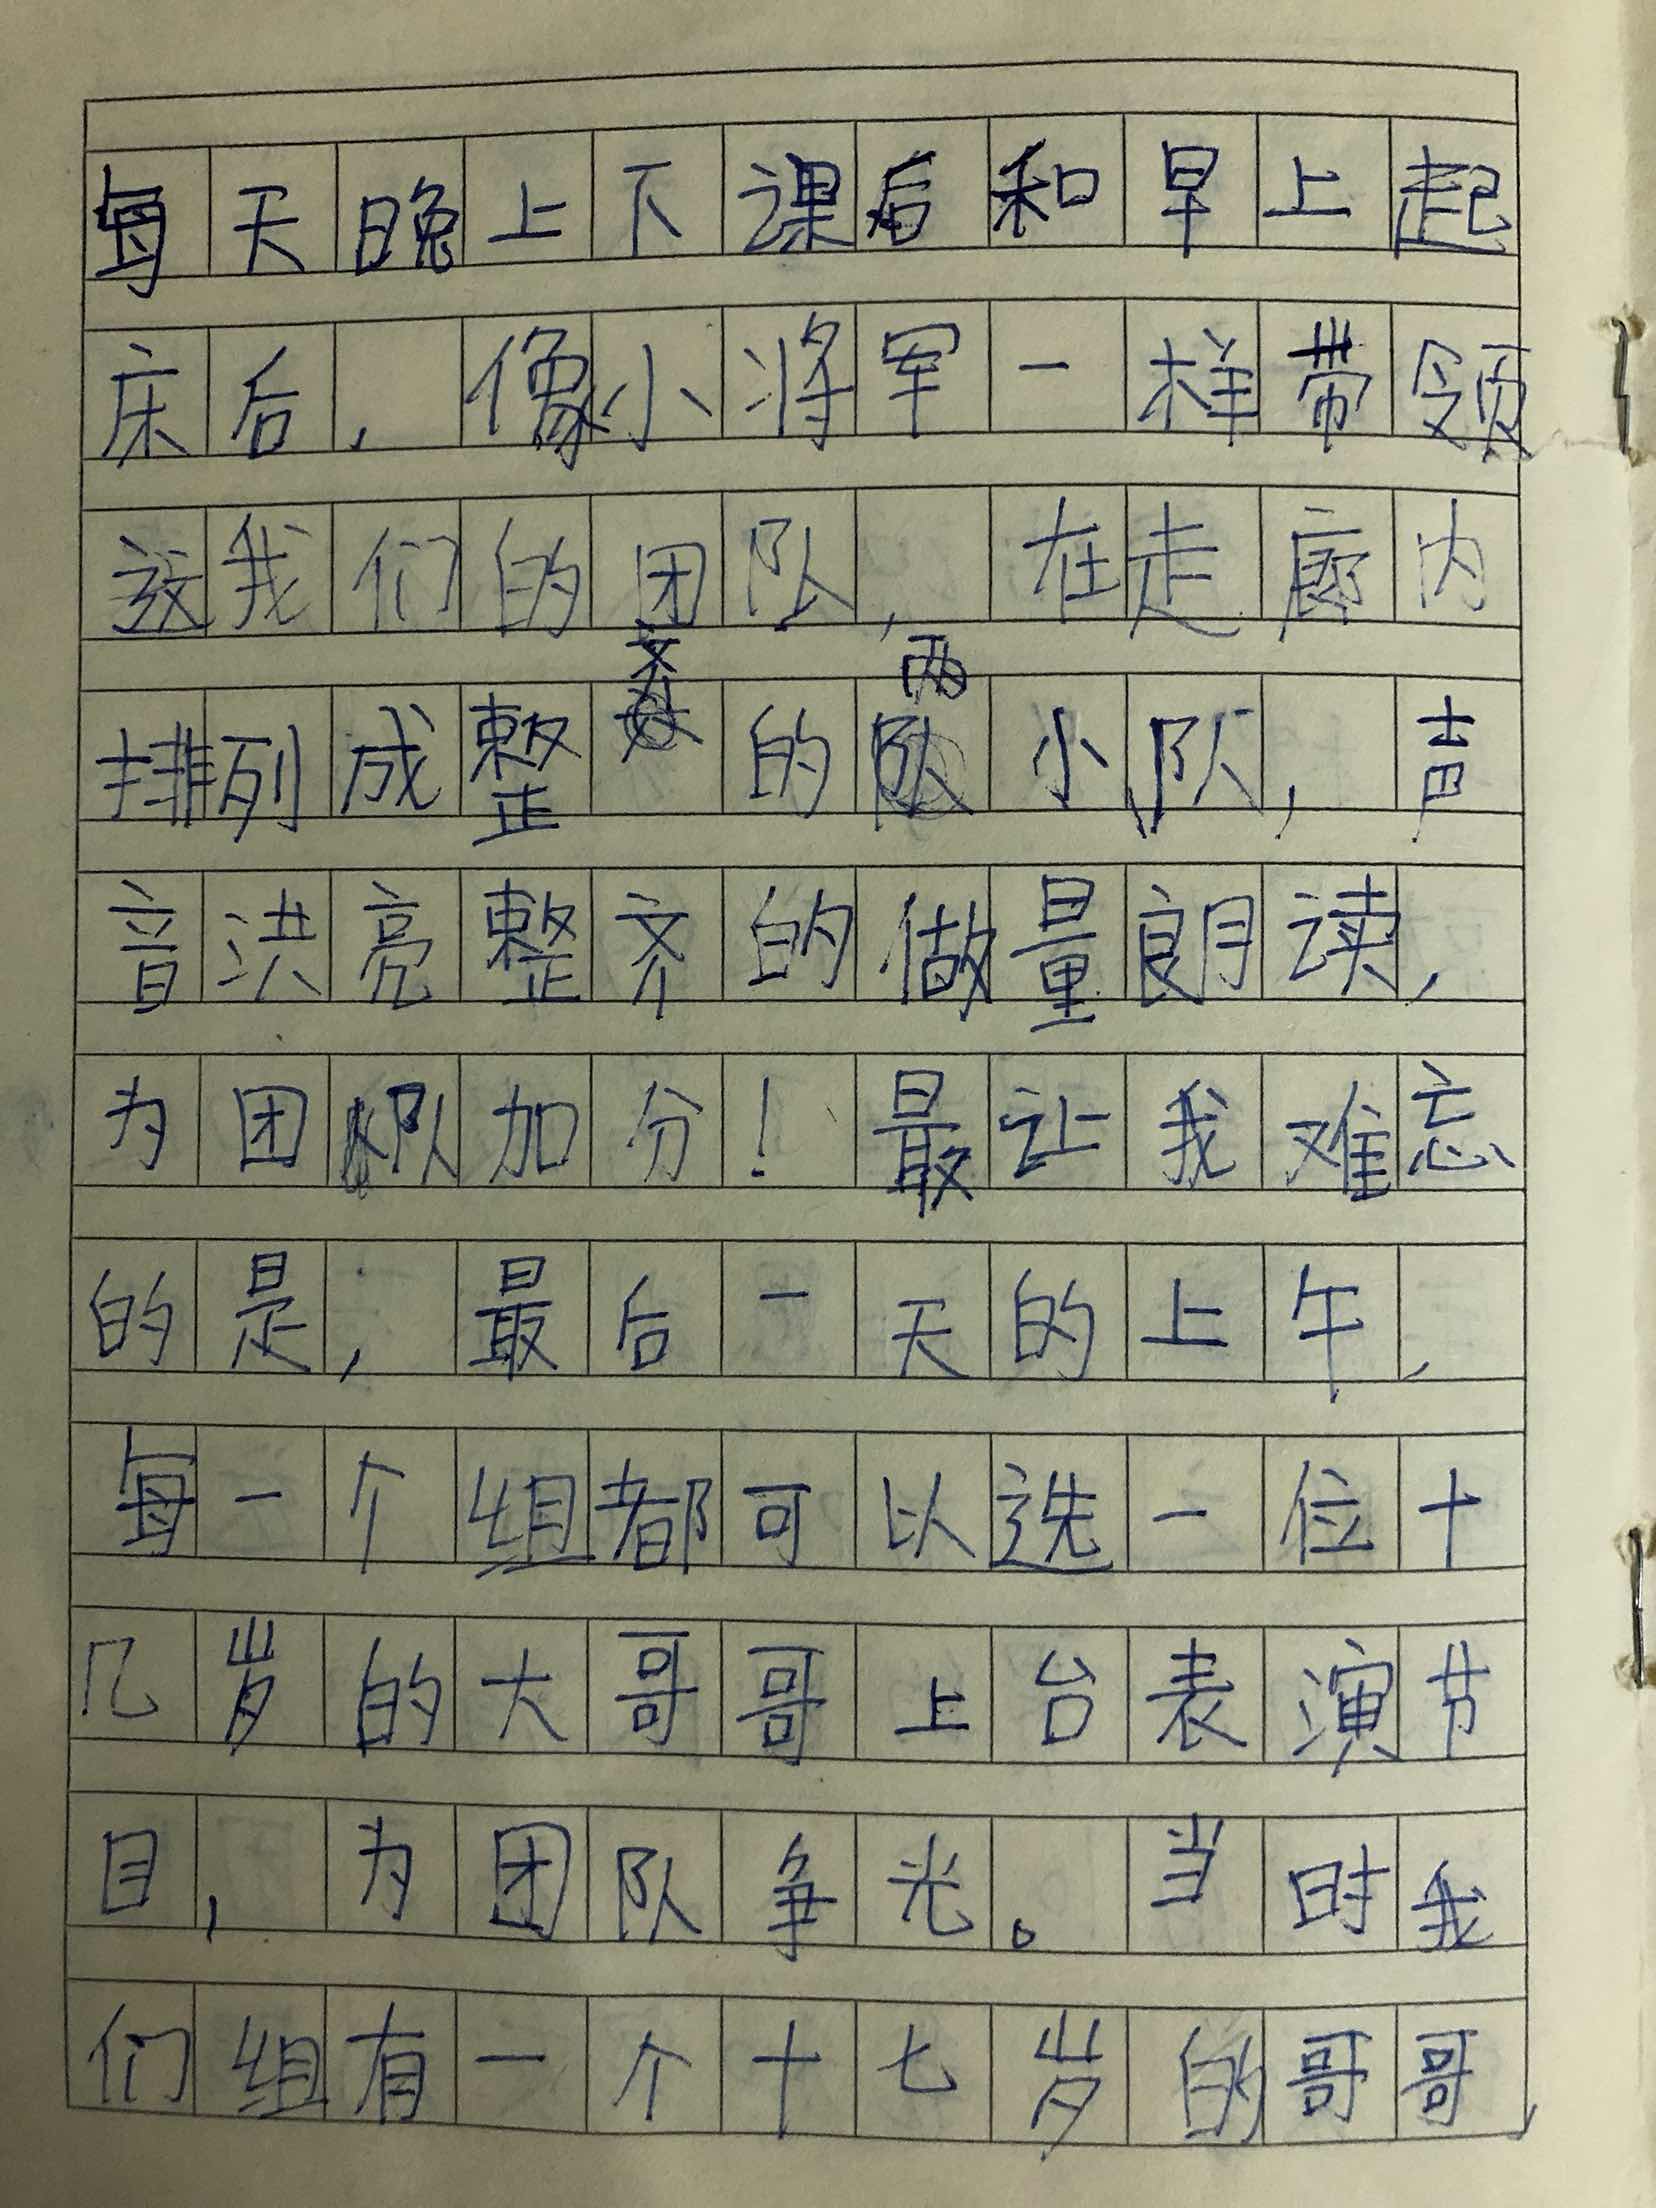 每天晚上下课后和早上起
床后，像小将军一样带领
这我们的团队，在走廊内
排列成整齐的两小队，声
音洪亮整齐的做量朗读，
为团队加分！最让我难忘
的是，最后一天的上午，
每一个组都可以选一位十
几岁的大哥哥上台表演节
目，为团队争光。当时我
们组有一个十七岁的哥哥，